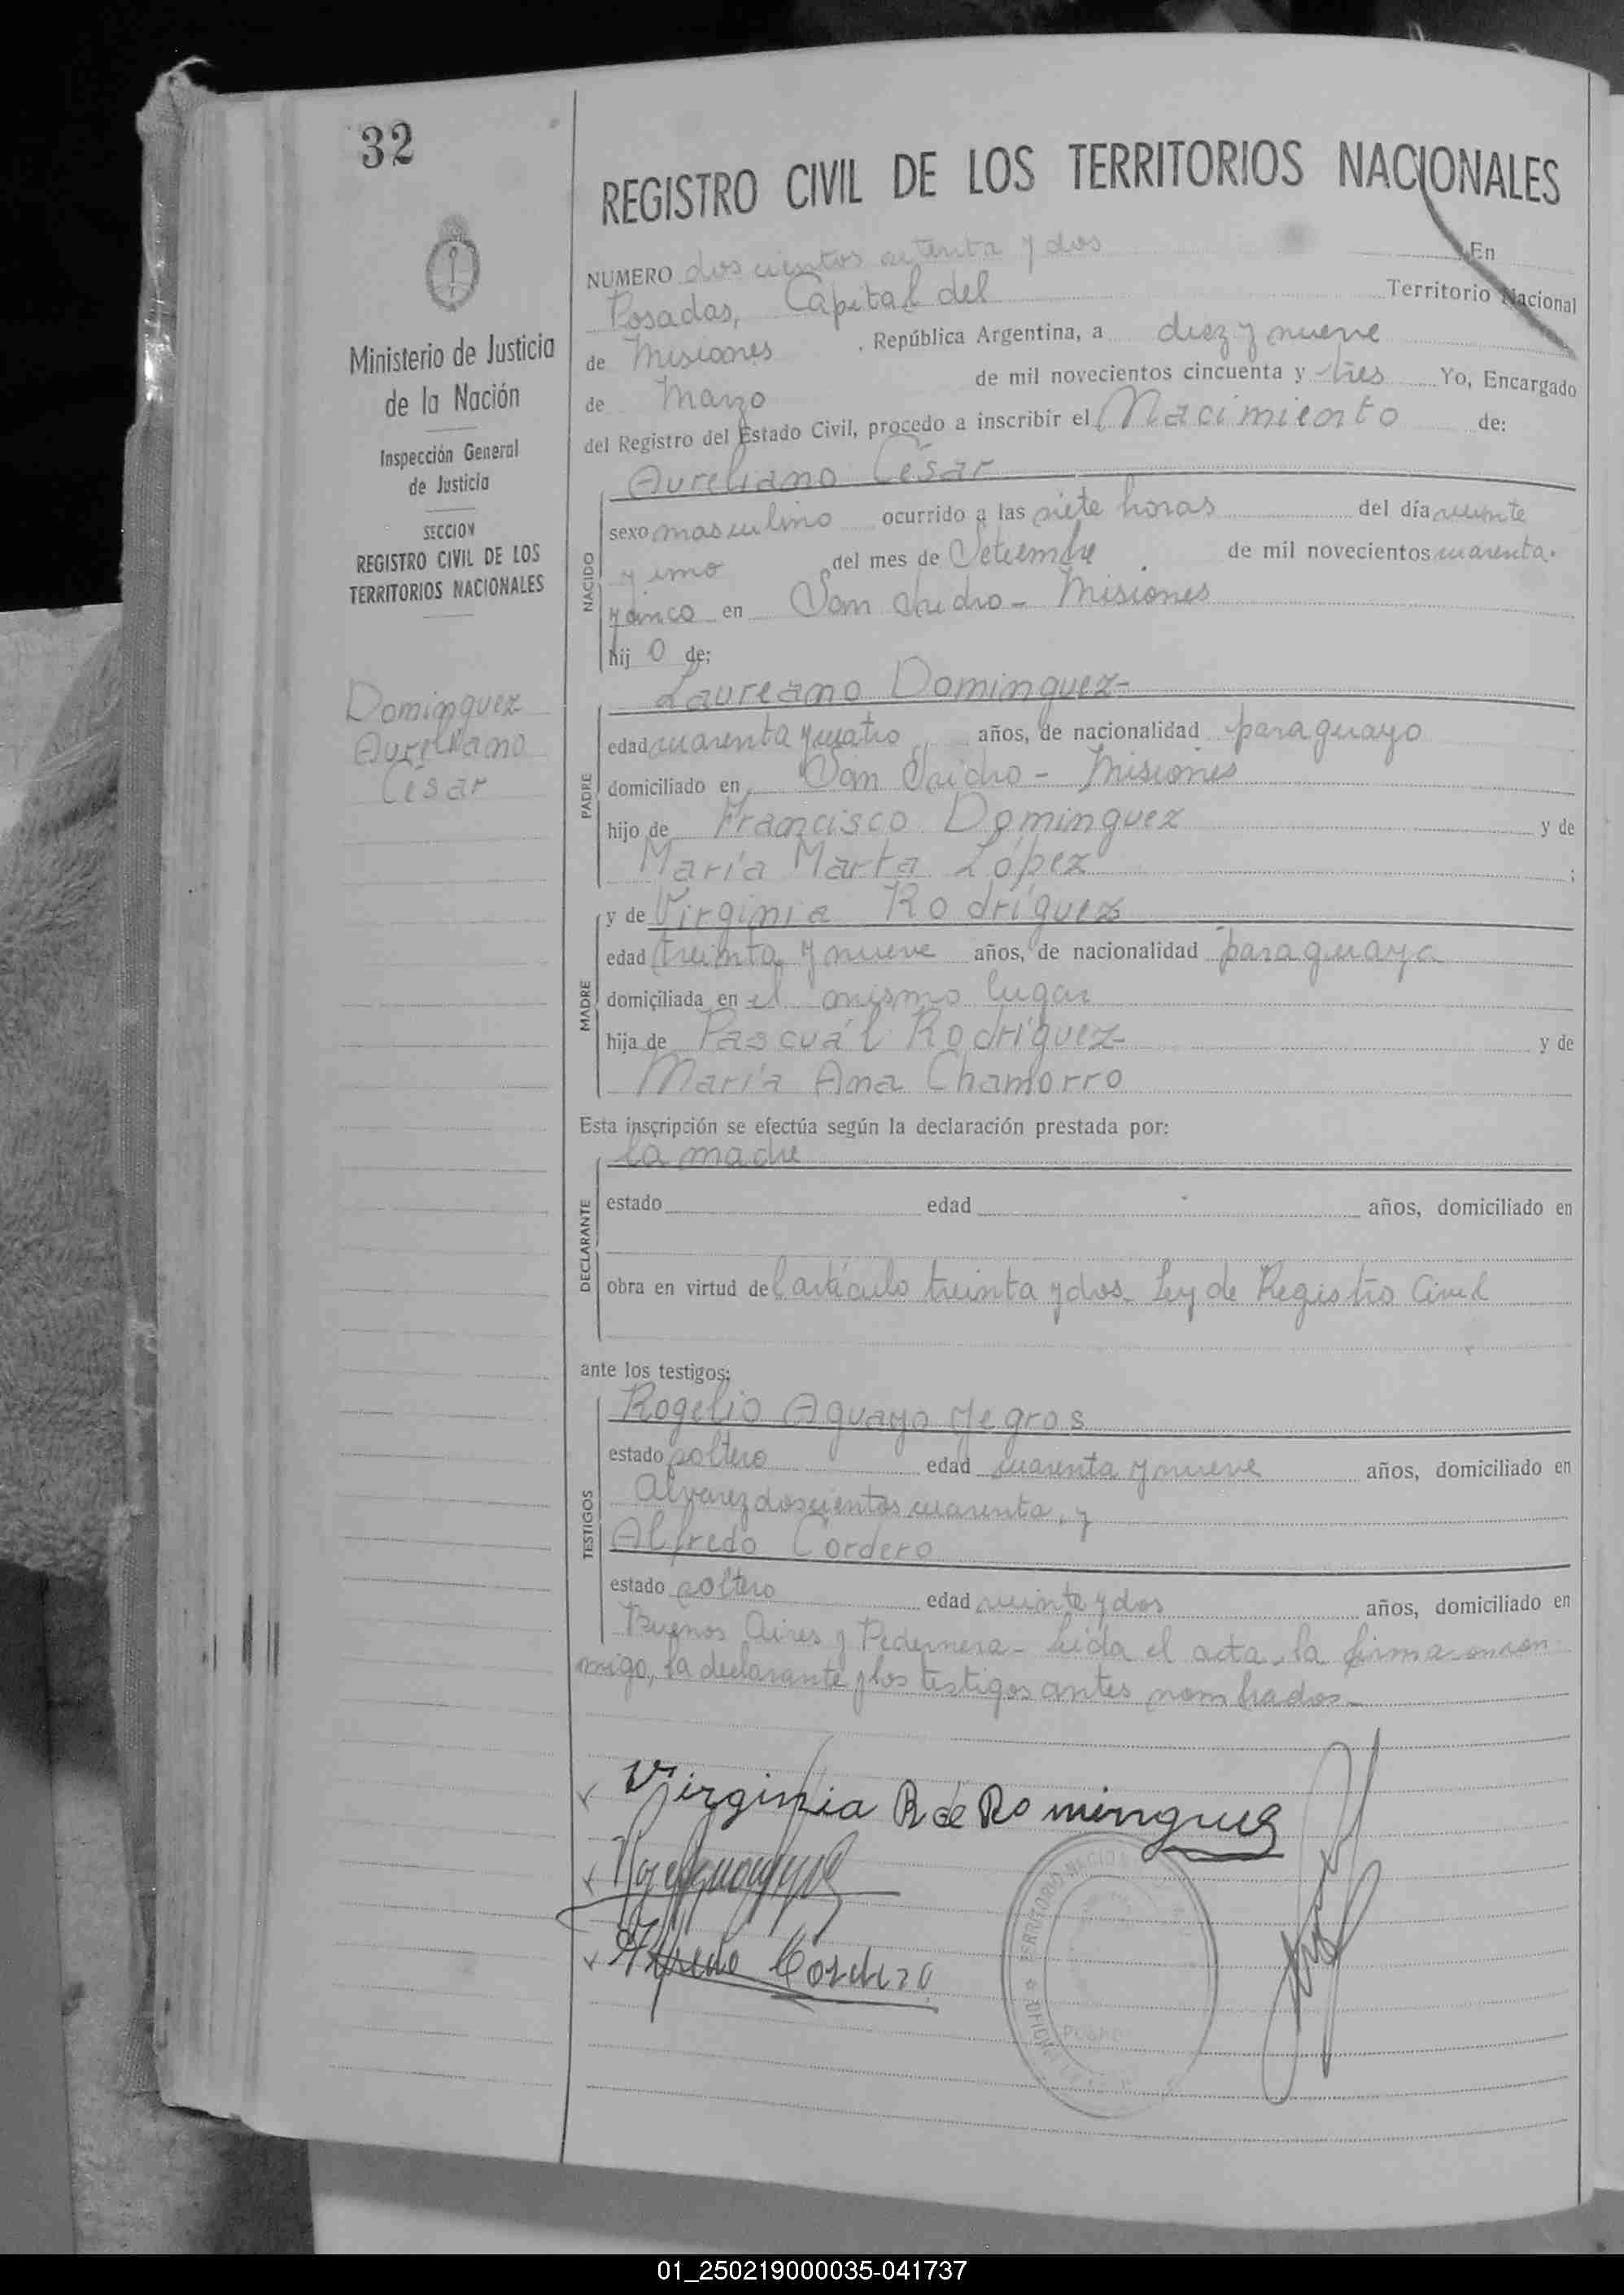 32
REGISTRO CIVIL DE LOS TERRITORIOS NACIONALES
Ministerio de Justicia
de la Nación
Inspección General
de Justicia
SECCION
REGISTRO CIVIL DE LOS
TERRITORIOS NACIONALES
Dominguez
Aureliano
César
NUMERO dos cientos setenta y dos En
Posadas, Capital del Territorio Nacional
de Misiones , República Argentina, a diez y nueve
de Marzo de mil novecientos cincuenta y tres Yo, Encargado
del Registro del Estado Civil, procedo a inscribir el Nacimiento de:
NACIDO
Aureliano César
sexo masculino ocurrido a las siete horas del día veinte
y uno del mes de Setiembre de mil novecientos cuarenta
y cinco en San Isidro - Misiones
hij o de:
PADRE
Laureano Dominguez
edad cuarenta y cuatro años, de nacionalidad paraguayo
domiciliado en San Isidro - Misiones
hijo de Francisco Dominguez y de
María Marta López ;
MADRE
y de Virginia Rodríguez
edad treinta y nueve años, de nacionalidad paraguaya
domiciliada en el mismo lugar
hija de Pascuál Rodríguez y de
María Ana Chamorro
Esta inscripción se efectúa según la declaración prestada por:
DECLARANTE
la madre
estado edad años, domiciliado en
obra en virtud del artículo treinta y dos - Ley de Registro Civil
ante los testigos:
TESTIGOS
Rogelio Aguayo Yegros
estado soltero edad cuarenta y nueve años, domiciliado en
Alvarez doscientos cuarenta, y
Alfredo Cordero
estado soltero edad veinte y dos años, domiciliado en
Buenos Aires y Pedernera - Leida el acta, la firma con
migo, la declarante y los testigos antes nombrados -
Virginia R de Rominguez
Alfredo Cordero
TERRITORIO NACION
01_250219000035-041737